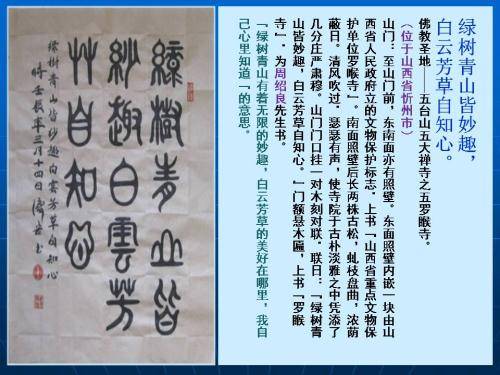 绿树青山皆妙趣，
白云芳草自知心。
佛教圣地——五台山五大禅寺之五罗睺寺。
（位于山西省忻州市）
山门：至山门前，东南面亦有照壁。东面照壁内嵌一块由山
西省人民政府立的文物保护标志。上书『山西省重点文物保
护单位罗睺寺』。南面照壁后长两株古松，虬枝盘曲，浓荫
蔽日。清风吹过，瑟瑟有声，使寺院于古朴淡雅之中凭添了
几分庄严肃穆。山门门口挂一对木刻对联。联曰：『绿树青
山皆妙趣，白云芳草自知心。』门额悬木匾，上书『罗睺
寺』。为周绍良先生书。
『绿树青山有着无限的妙趣，白云芳草的美好在哪里，我自
己心里知道』的意思。
綠樹青山皆
紗趣白雲芳
艸自知心
绿树青山皆妙趣白雲芳草自知心
时壬辰年三月十四日